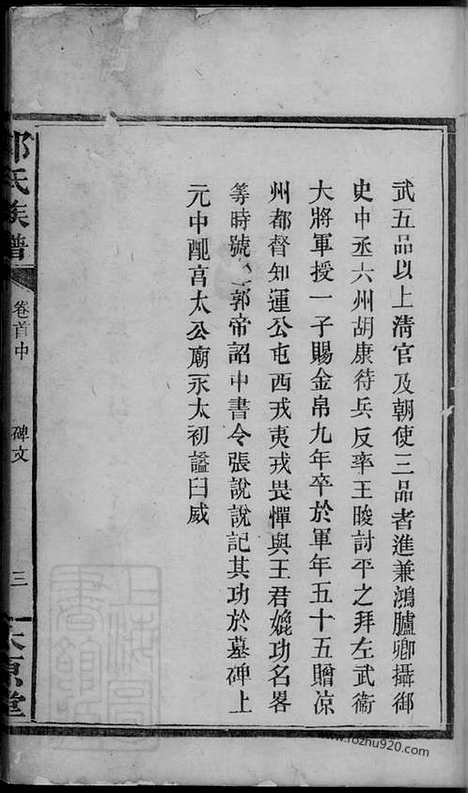 武五品以上清官及朝使三品者進兼鴻臚卿攝御
史中丞六州胡康待兵反率王晙討平之拜左武衞
大將軍授一子賜金帛九年卒於軍年五十五贈凉
州都督知運公屯西戎夷戎畏憚與王君㚟功名畧
等時號郭帝詔中書令張說說記其功於墓碑上
元中配亯太公廟永太初謚曰威
郭氏族譜
卷首中
碑文
三
太原堂
上海圖書館藏
www.fozhu920.com